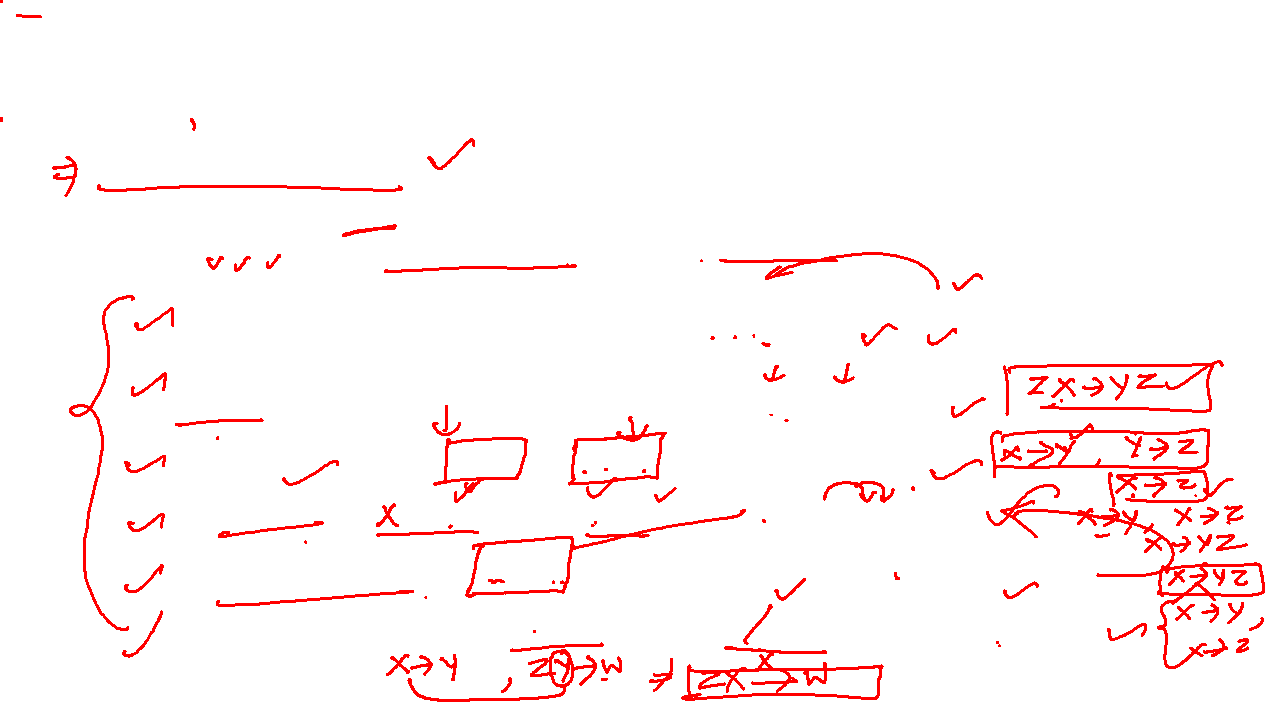 ZX→YZ
X→Y, Y→Z
X→Z
X
X→Y, X→Z
X→YZ
X→YZ
X→Y,
X→Z
X→Y, ZY→W ⇒ ZX→W
X